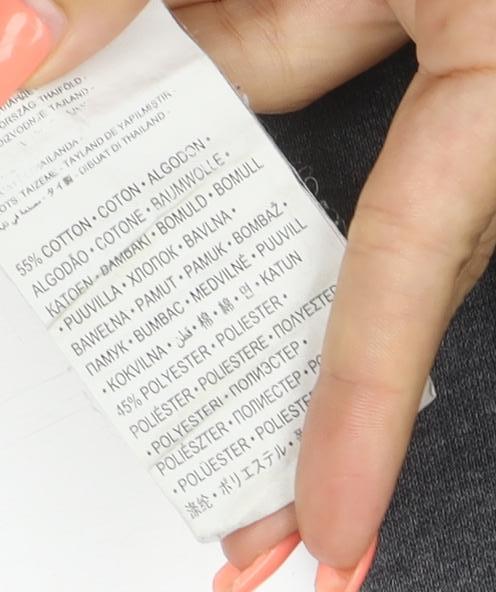 ORSZÁG THAIFÖLD ·
TAYLAND DE YAPILMIŞTIR ·
OTS TAIZEME · タイ製 · DIBUAT DI THAILAND ·
55% COTTON · COTON · ALGODON ·
ALGODÃO · COTONE · BAUMWOLLE ·
KATOEN · BAMBAKI · BOMULD · BOMULL
· PUUVILLA · ХЛОПОК · BAVLNA ·
BAWEŁNA · PAMUT · PAMUK · BOMBAŽ ·
ПАМУК · BUMBAC · MEDVILNĖ · PUUVILL
· KOKVILNA · قطن · 棉 · 綿 · 면 · KATUN
45% POLYESTER · POLIESTER ·
POLIÉSTER · POLIESTERE · ΠΟΛΥΕΣΤΕΡ
· POLYESTERI · ПОЛИЭСТЕР ·
POLIÉSZTER · ПОЛИЕСТЕР · PO
· POLÜESTER · POLIESTE
涤纶 · ポリエステル ·